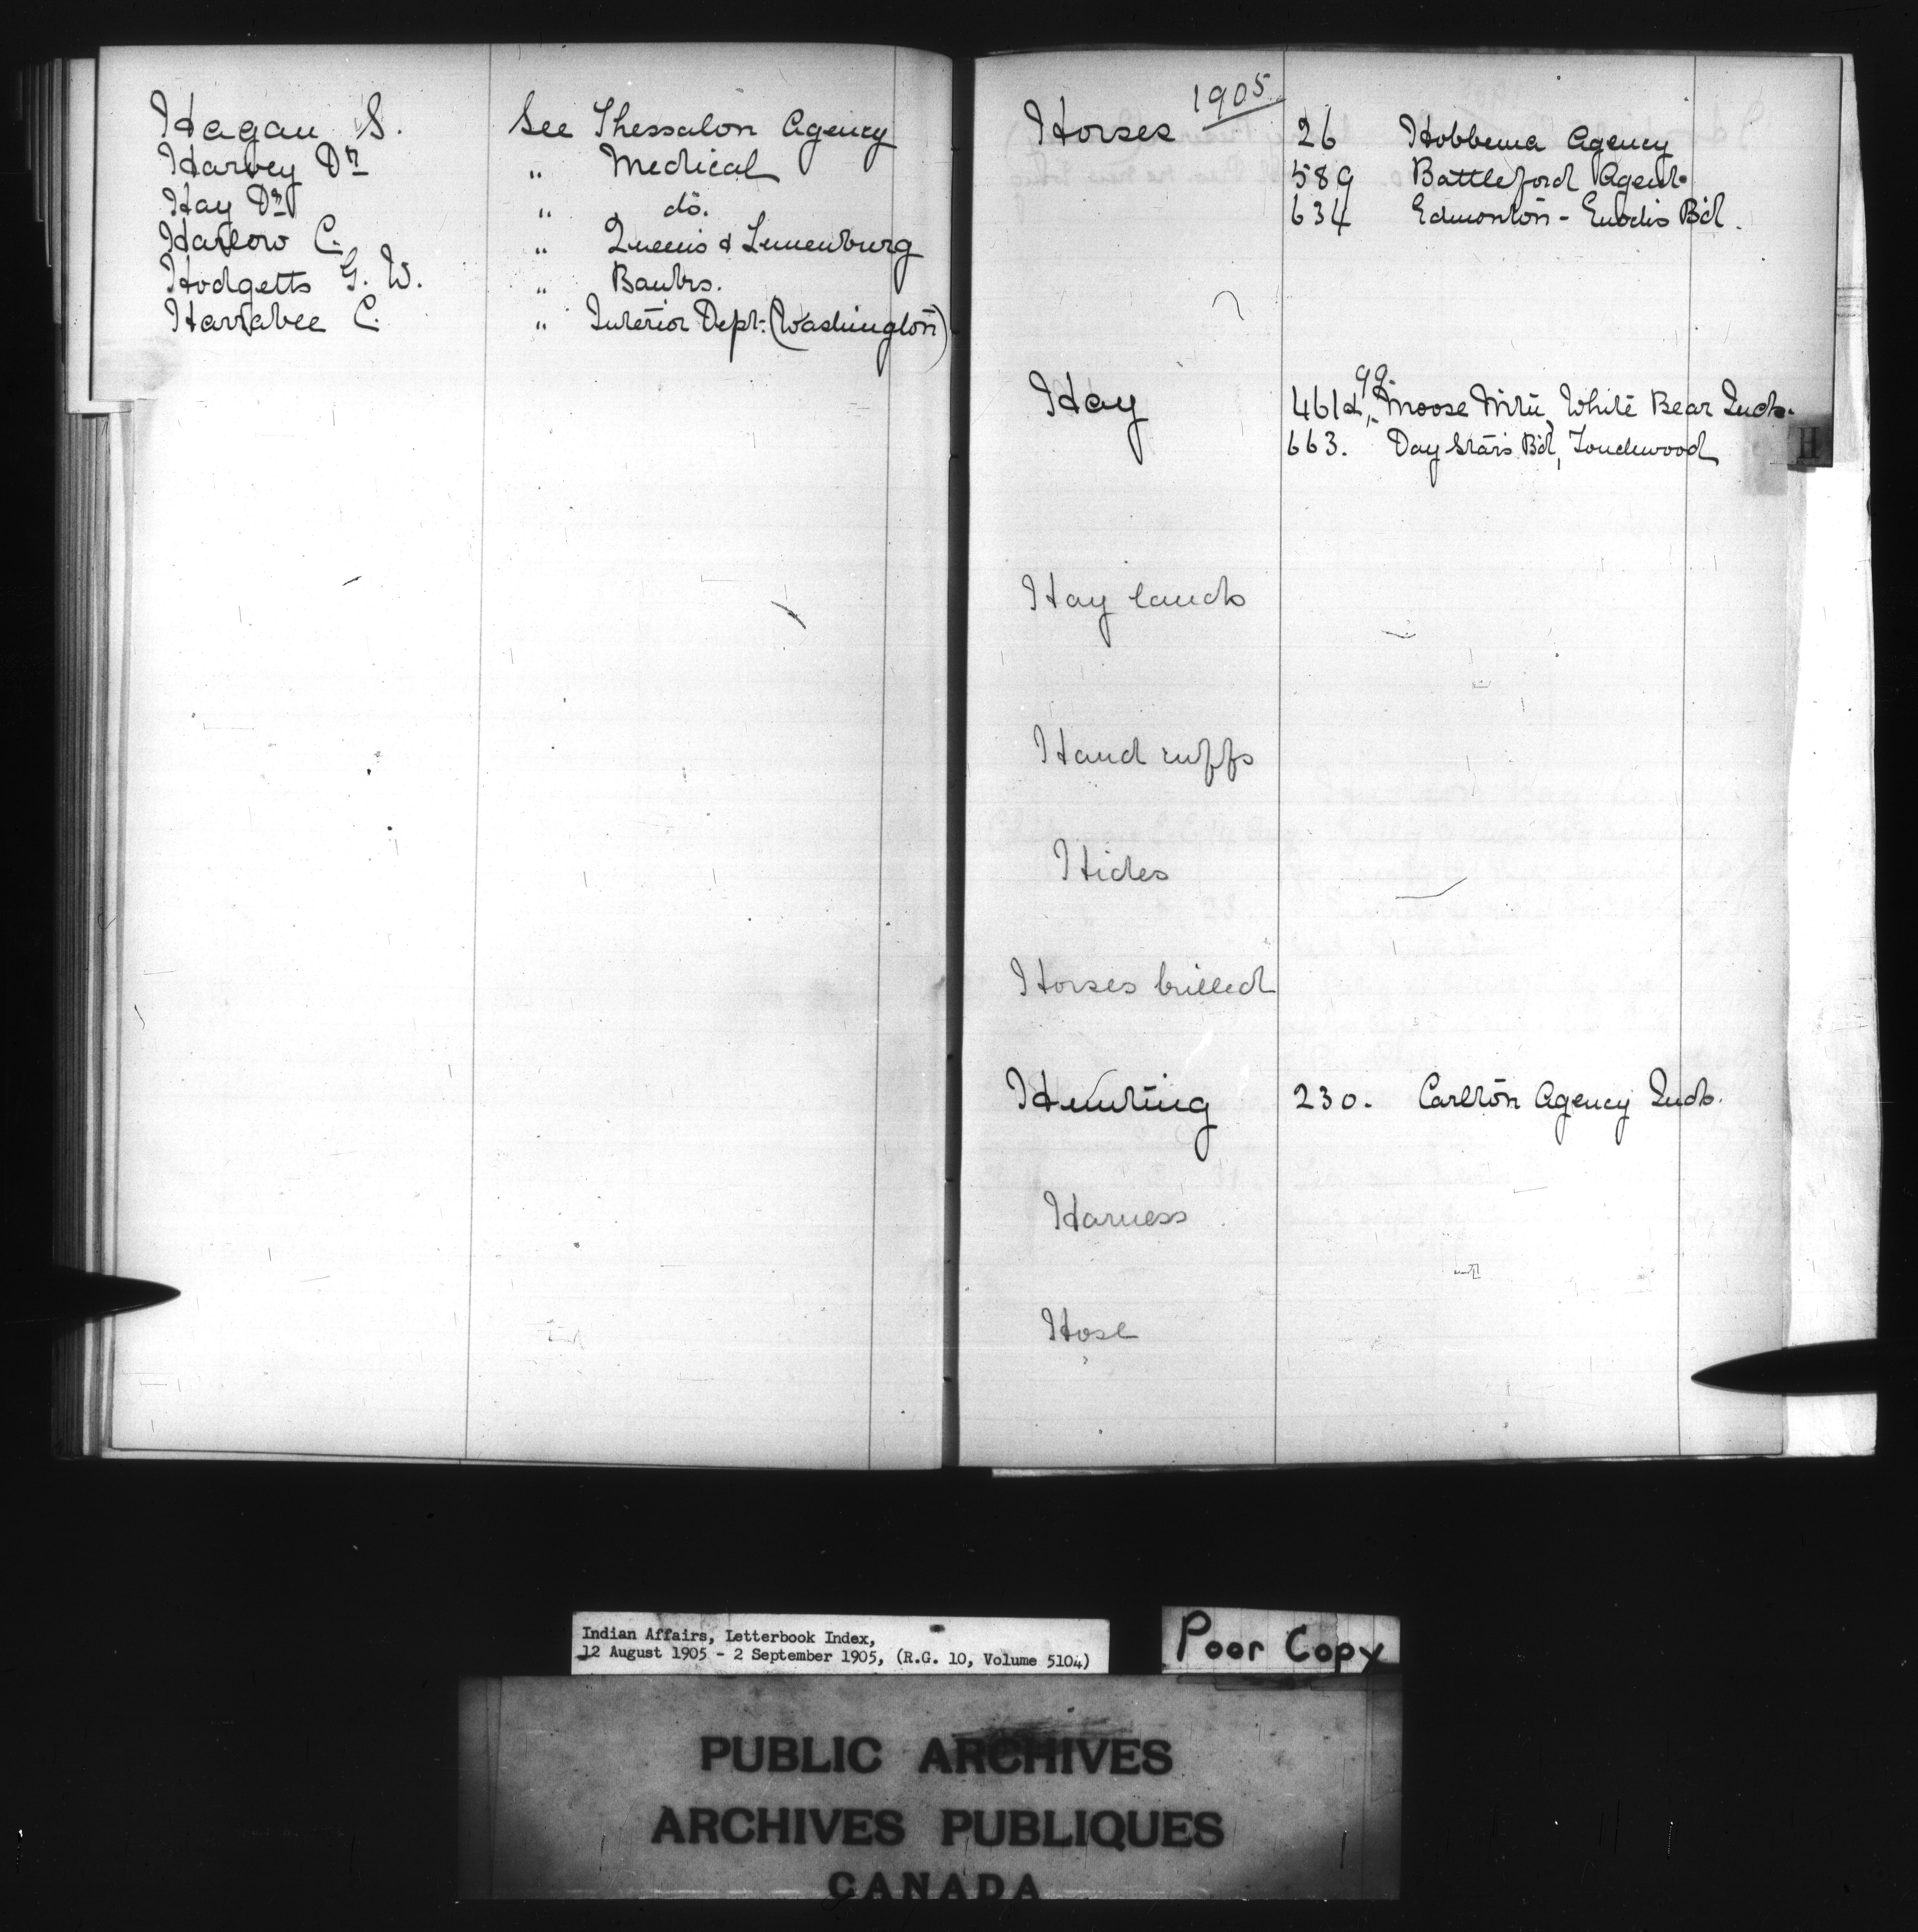 Hagan S. See Thessalon Agency
Harvey Dr " Medical
Hay Dr " do.
Harlow C. " Queens & Lunenburg
Hodgetts G. W. " Banks.
Harrabee C. " Interior Dept. (Washington)
1905
Horses 26 Hobbema Agency
589 Battleford Agent.
634 Edmonton - Enochs Bd.
99
Hay 461d, Moose Mtn, White Bear Inds.
663. Day Stars Bd, Touchwood
H
Hay lands
Hand cuffs
Hides
Horses killed
Hunting 230. Carlton Agency Inds.
Harness
Hose
Indian Affairs, Letterbook Index,
12 August 1905 - 2 September 1905, (R.G. 10, Volume 5104)
Poor Copy
PUBLIC ARCHIVES
ARCHIVES PUBLIQUES
CANADA